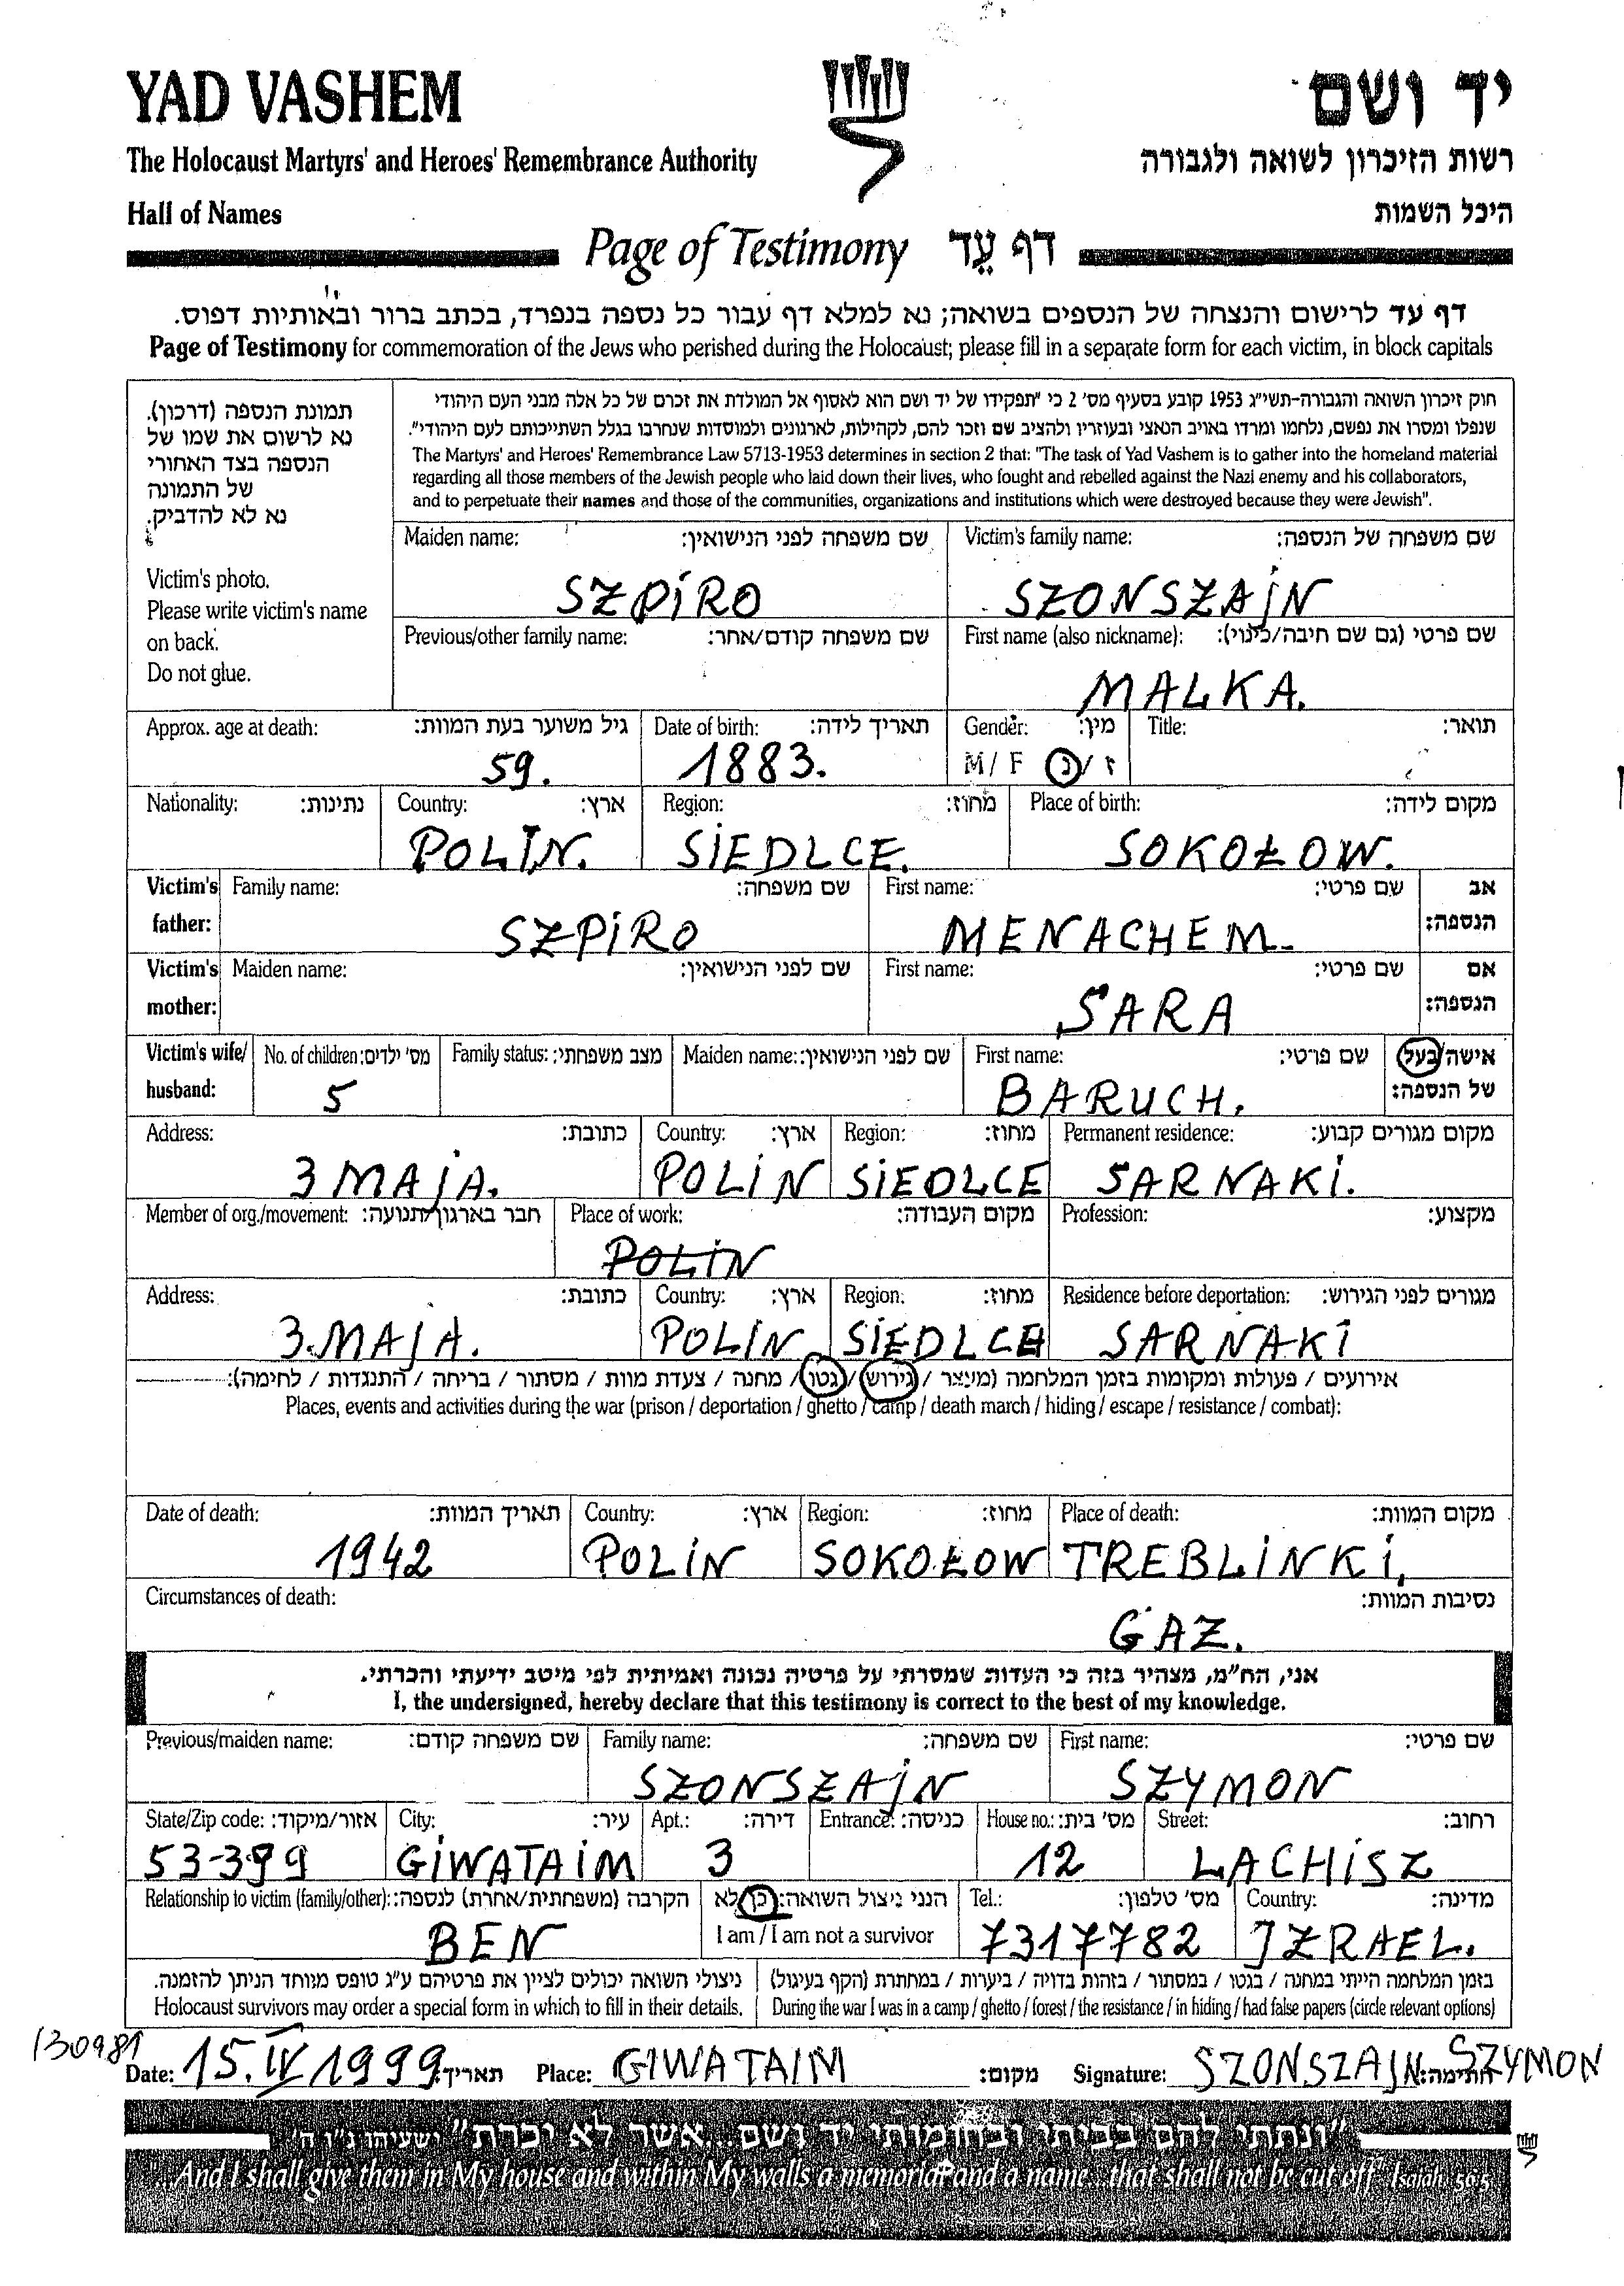 YAD VASHEM
יד ושם
The Holocaust Martyrs' and Heroes' Remembrance Authority
רשות הזיכרון לשואה ולגבורה
Hall of Names
היכל השמות
Page of Testimony דף עֵד
דף עד לרישום והנצחה של הנספים בשואה; נא למלא דף עבור כל נספה בנפרד, בכתב ברור ובאותיות דפוס.
Page of Testimony for commemoration of the Jews who perished during the Holocaust; please fill in a separate form for each victim, in block capitals
תמונת הנספה (דרכון).
נא לרשום את שמו של
הנספה בצד האחורי
של התמונה
נא לא להדביק.
Victim's photo.
Please write victim's name
on back.
Do not glue.
חוק זיכרון השואה והגבורה-תשי"ג 1953 קובע בסעיף מס' 2 כי "תפקידו של יד ושם הוא לאסוף אל המולדת את זכרם של כל אלה מבני העם היהודי
שנפלו ומסרו את נפשם, נלחמו ומרדו באויב הנאצי ובעוזריו ולהציב שם וזכר להם, לקהילות, לארגונים ולמוסדות שנחרבו בגלל השתייכותם לעם היהודי".
The Martyrs' and Heroes' Remembrance Law 5713-1953 determines in section 2 that: "The task of Yad Vashem is to gather into the homeland material
regarding all those members of the Jewish people who laid down their lives, who fought and rebelled against the Nazi enemy and his collaborators,
and to perpetuate their names and those of the communities, organizations and institutions which were destroyed because they were Jewish".
Maiden name: שם משפחה לפני הנישואין: Victim's family name: שם משפחה של הנספה:
SZPIRO SZONSZAJN
Previous/other family name: שם משפחה קודם/אחר: First name (also nickname): שם פרטי (גם שם חיבה/כינוי):
MALKA.
Approx. age at death: גיל משוער בעת המוות: Date of birth: תאריך לידה: Gender: מין: Title: תואר:
59. 1883. M/ F נ / ז
Nationality: נתינות: Country: ארץ: Region: מחוז: Place of birth: מקום לידה:
POLIN. SIEDLCE. SOKOŁOW.
Victim's father: Family name: שם משפחה: First name: שם פרטי: אב הנספה:
SZPIRO MENACHEM.
Victim's mother: Maiden name: שם לפני הנישואין: First name: שם פרטי: אם הנספה:
SARA
Victim's wife/ husband: No. of children: מס' ילדים: Family status: מצב משפחתי: Maiden name: שם לפני הנישואין: First name: שם פרטי: אישה/בעל של הנספה:
5 BARUCH.
Address: כתובת: Country: ארץ: Region: מחוז: Permanent residence: מקום מגורים קבוע:
3 MAJA. POLIN SIEDLCE SARNAKI.
Member of org./movement: חבר בארגון/תנועה: Place of work: מקום העבודה: Profession: מקצוע:
POLIN
Address: כתובת: Country: ארץ: Region: מחוז: Residence before deportation: מגורים לפני הגירוש:
3.MAJA. POLIN SIEDLCE SARNAKI
אירועים / פעולות ומקומות בזמן המלחמה (מעצר / גירוש / גטו / מחנה / צעדת מוות / מסתור / בריחה / התנגדות / לחימה):
Places, events and activities during the war (prison / deportation / ghetto / camp / death march / hiding / escape / resistance / combat):
Date of death: תאריך המוות: Country: ארץ: Region: מחוז: Place of death: מקום המוות:
1942 POLIN SOKOŁOW TREBLINKI,
Circumstances of death: נסיבות המוות:
GAZ.
אני, הח"מ, מצהיר בזה כי העדות שמסרתי על פרטיה נכונה ואמיתית לפי מיטב ידיעתי והכרתי.
I, the undersigned, hereby declare that this testimony is correct to the best of my knowledge.
Previous/maiden name: שם משפחה קודם: Family name: שם משפחה: First name: שם פרטי:
SZONSZAJN SZYMON
State/Zip code: אזור/מיקוד: City: עיר: Apt.: דירה: Entrance: כניסה: House no.: מס' בית: Street: רחוב:
53-399 GIWATAIM 3 12 LACHISZ
Relationship to victim (family/other): הקרבה (משפחתית/אחרת) לנספה: הנני ניצול השואה: כן/לא Tel.: מס' טלפון: Country: מדינה:
BEN I am / I am not a survivor 7317782 IZRAEL.
ניצולי השואה יכולים לציין את פרטיהם ע"ג טופס מיוחד הניתן להזמנה.
Holocaust survivors may order a special form in which to fill in their details.
בזמן המלחמה הייתי במחנה / בגטו / במסתור / בזהות בדויה / ביערות / במחתרת (הקף בעיגול)
During the war I was in a camp / ghetto / forest / the resistance / in hiding / had false papers (circle relevant options)
130981
Date: 15.IV 1999 תאריך: Place: GIWATAIM מקום: Signature: SZONSZAJN SZYMON חתימה:
"ונתתי להם בביתי ובחומותי יד ושם...אשר לא יכרת" ישעיהו נ"ו ה'
...And I shall give them in My house and within My walls a memorial and a name...that shall not be cut off Isaiah 56:5